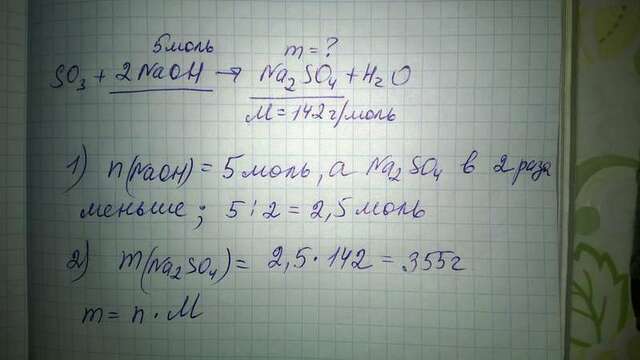 5 моль m = ?
SO₃ + 2NaOH → Na₂SO₄ + H₂O
M = 142 г/моль
1) n(NaOH) = 5 моль, а Na₂SO₄ в 2 раза
меньше; 5 : 2 = 2,5 моль
2) m(Na₂SO₄) = 2,5 · 142 = 355 г
m = n · M